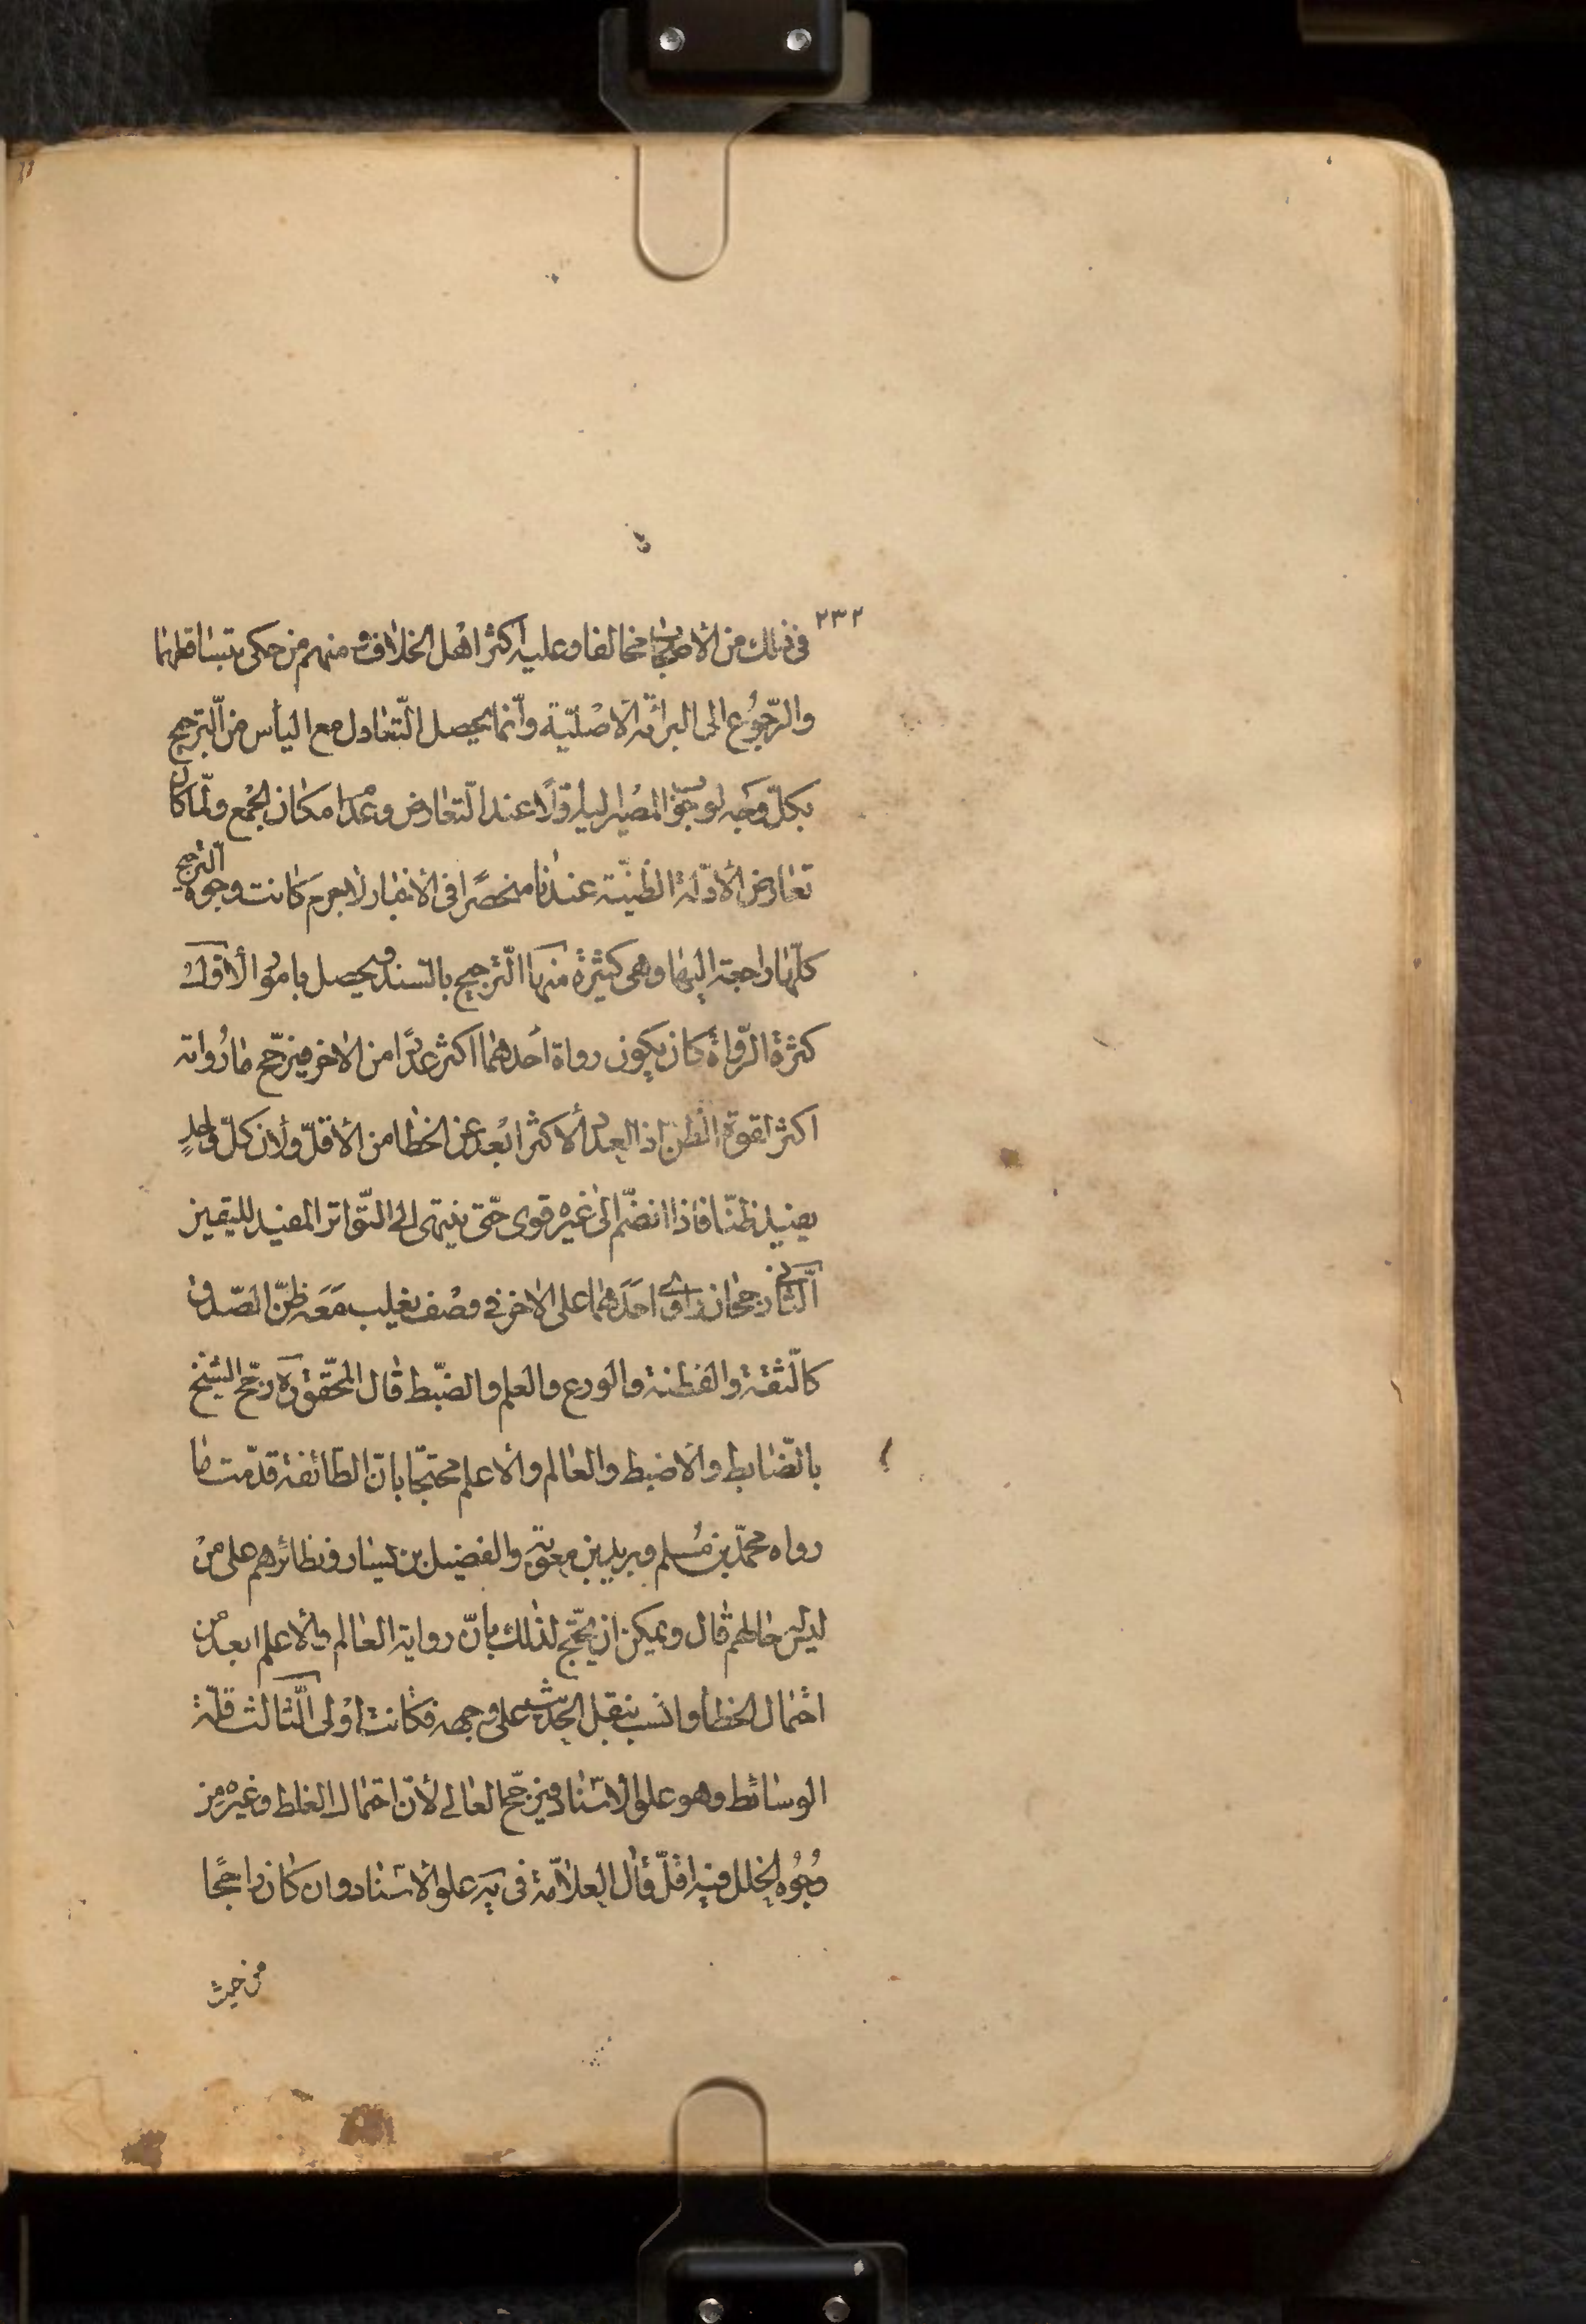 ٢٣٢
فى ذلك من الأصحاب مخالفا وعليه اكثر اهل الخلاف و منهم من حكى بتساقطهما
والرّجوُع الى البرائة الاصْليّة وانّما يحصل التّعادل مع اليأس من التّرجيح
بكلّ وجه لوجوُب المصْير اليه اوّلًا عند التّعارض وعدم امكان الجمْع ولمّا كان
تعارض الأدلّة الظنيّة عندنا منحصًرا فى الأخبار لاجرم كانت وجوه التّرجيح
كلّها راجعة اليها وهى كثيرة منها التّرجيح بالسّند ويحصل بامور الأوّل
كثرة الرّواة كان يكون رواة احدهما اكثر عددًا من الاخر فيرجّح ما رُواته
اكثر لقوة الظن اذ العدد الأكثر ابْعد عن الخطا من الأقلّ ولأن كلّ واحدٍ
يفيد ظنّا فاذا انضمّ الى غيره قوى حتّى ينتهى الى التّواتر المفيد لليقين
الثّانى رجحان راوى احدهما على الاخر فى وصْف يغلب مَعَه ظنّ الصّدق
كالثّقة والفطنة والورع والعلم والضّبط قال المحّقق ره رجّح الشيخ
بالضّابط والاضبط والعالم والاعلم محتجّا بانّ الطّائفة قدّمت ما
رواه محمّد بن مُسلم وبريد بن معوية والفضيل بن يسار ونظائرهم على منْ
ليس حالهم قال ويمكن ان يحّتج لذلك بانّ رواية العالم والاعلم ابعد من
احتمال الخطأ وانسب بنقل الحديث على وجهه فكانت اوْلى الثّالث قلّة
الوسائط وهو علو الاسْناد فيرجّح العالى لأنّ احتمال الغلط وغيره من
وُجُوُه الخلل فيه اقلّ وقال العلاّمة فى يه علو الاسْناد وان كان راجحًا
من حيث